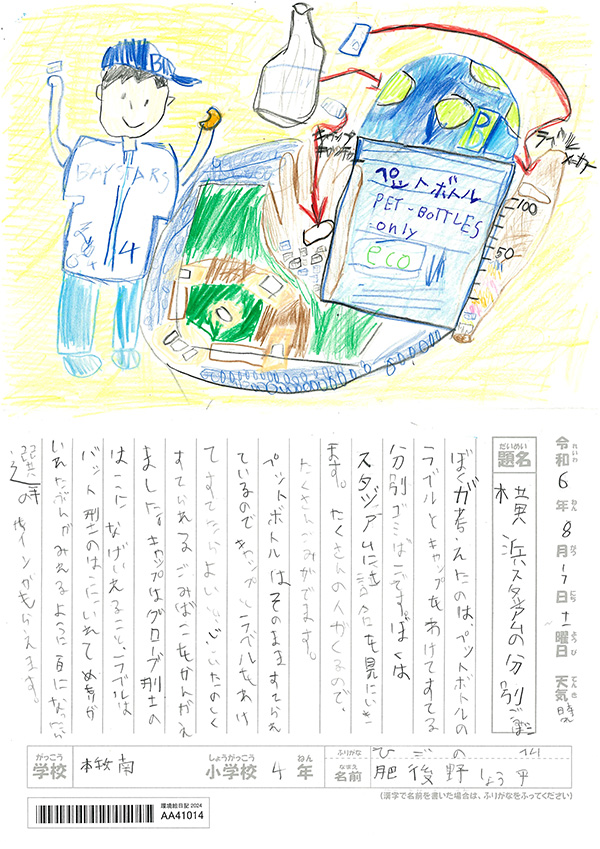 B
BAYSTARS
4
キャップ
B
ラベル
メーター
ペットボトル
PET-BOTTLES
-only
eco
100
50
令和6年8月17日土曜日 天気 晴れ
れいわ ねん がつ にち ようび てんき
だいめい
題名
横浜スタジアムの分別ごみばこ
ぼくが考えたのは、ペットボトルの
ラベルとキャップをわけてすてる
分別ゴミばこです。ぼくは
スタジアムに試合を見にいき
ます。たくさんの人がくるので、
たくさんごみがでます。
ペットボトルはそのまますてられ
ているのでキャップとラベルをわけ
てすてたらよいと
すてられるごみばこをかんがえ
ました。キャップはグローブ型の
はこになげいれること、ラベルは
バット型のはこにいれてめもりが
選手のサインがもらえます。
がっこう
学校
本牧南
しょうがっこう
小学校
4
ねん
年
ふりがな
ひごの
なまえ
名前
肥後野 しょう平
(漢字で名前を書いた場合は、ふりがなをふってください)
環境絵日記 2024
AA41014